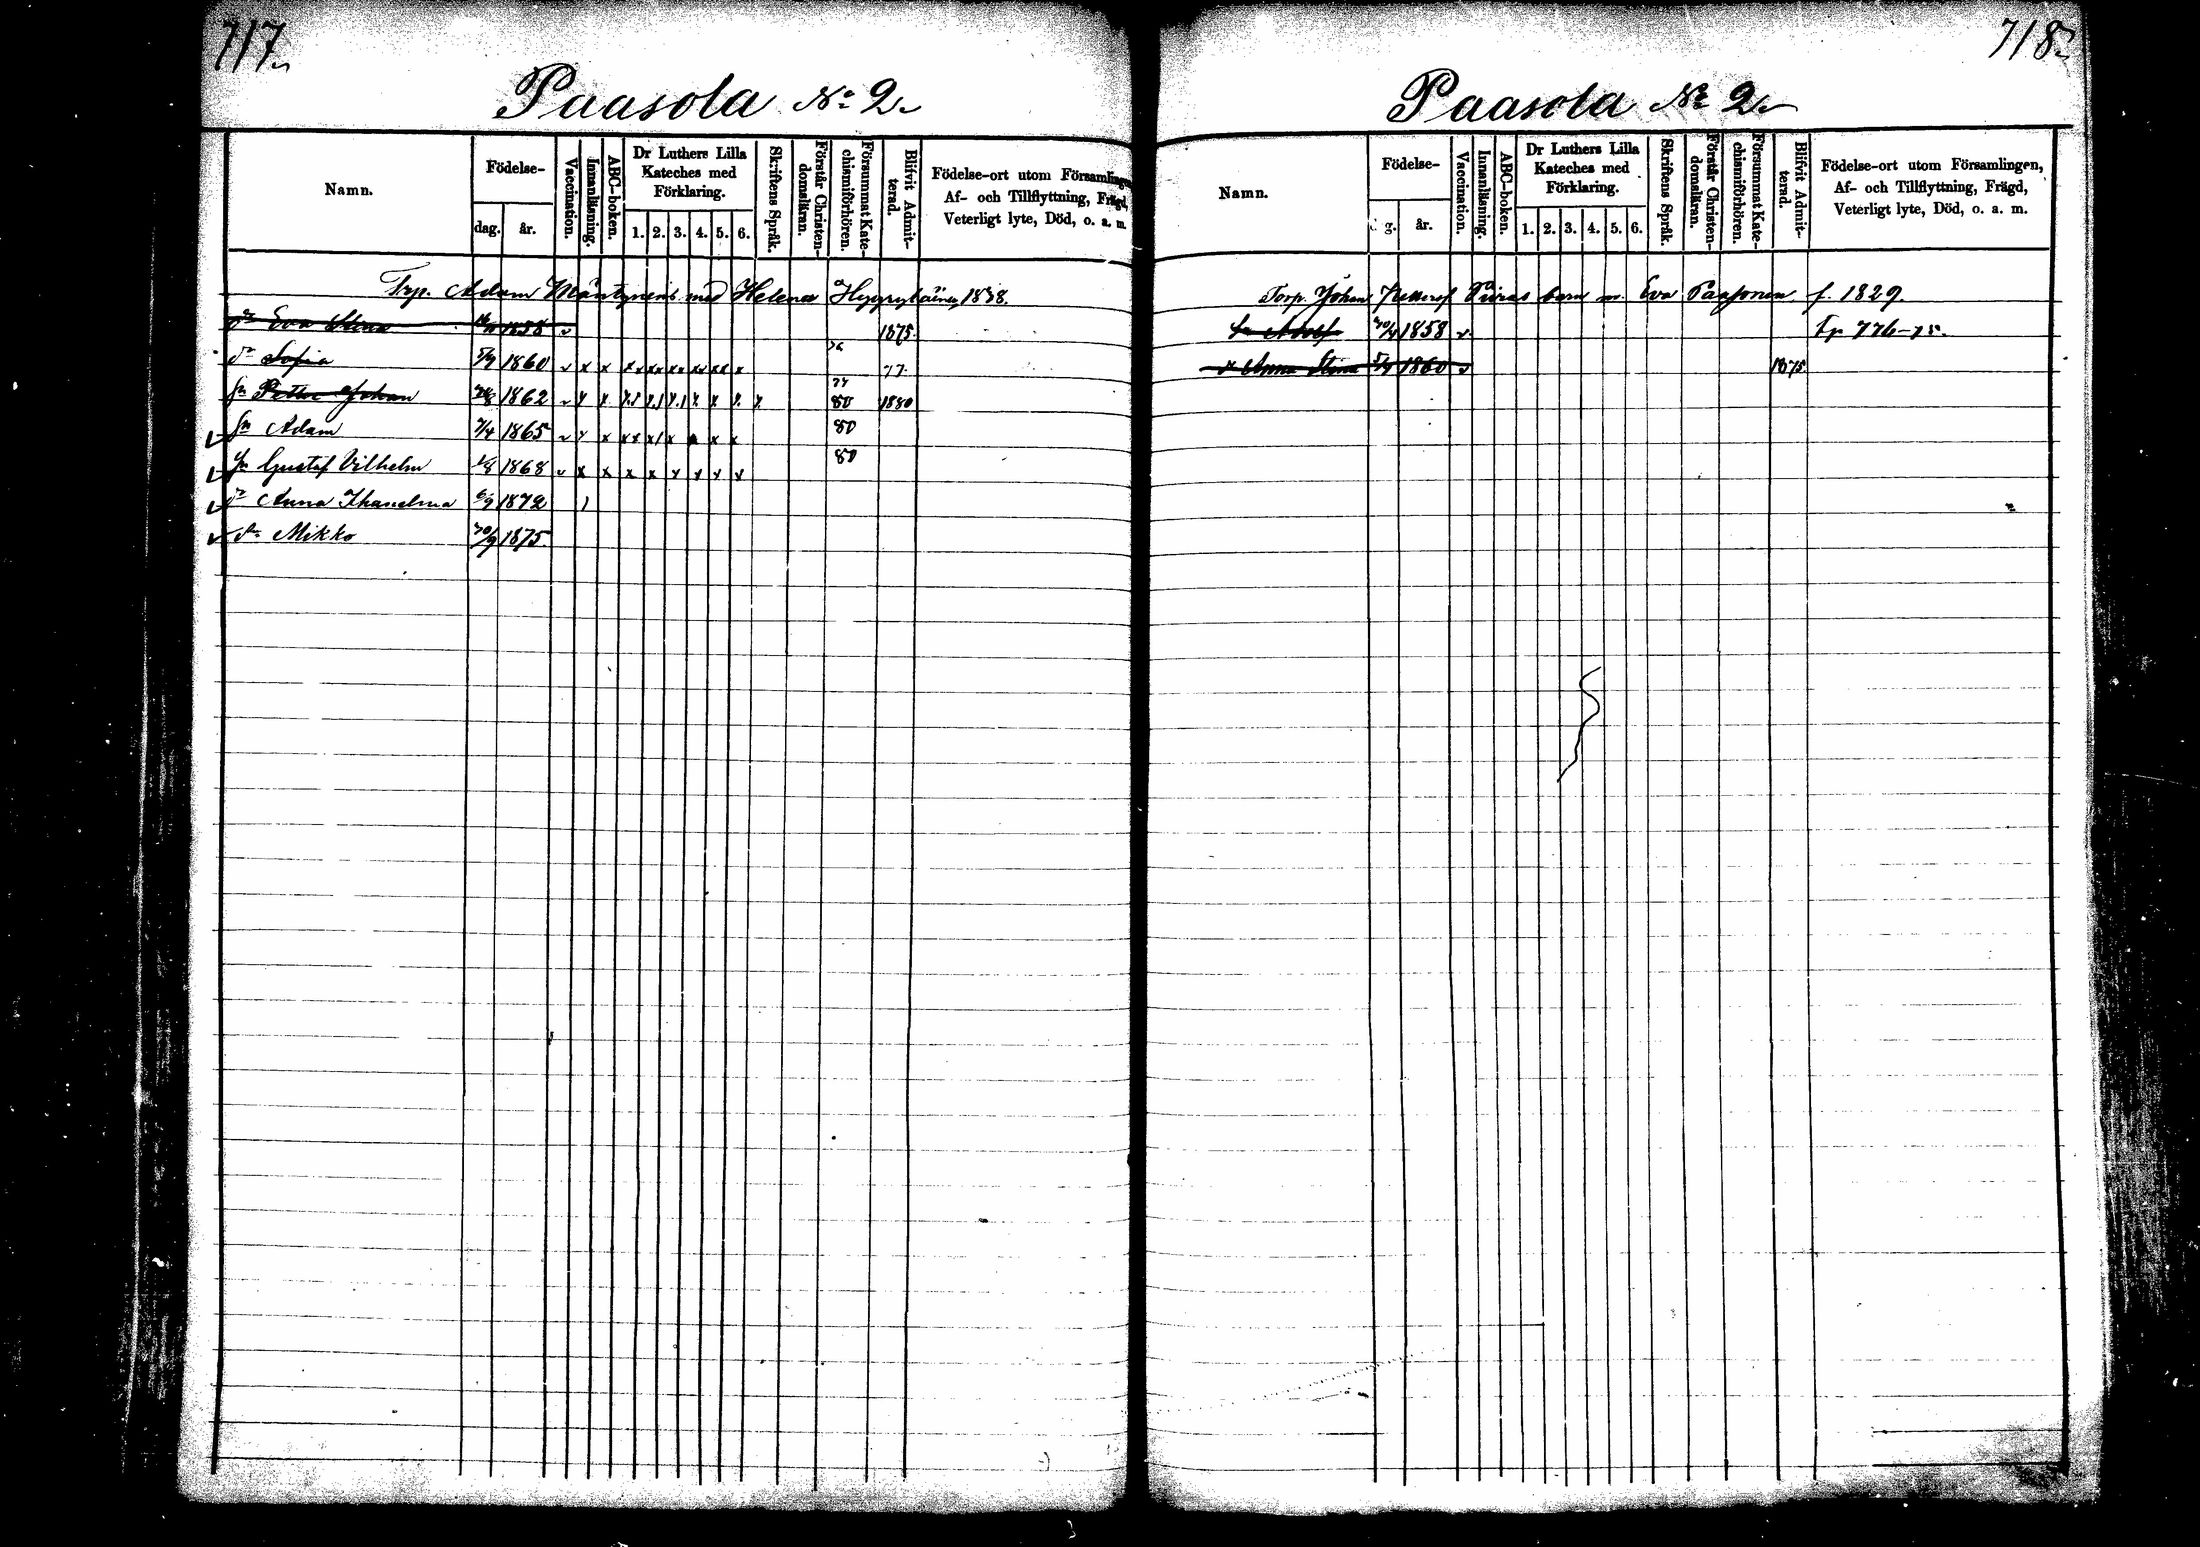 717.
Paasola No 2.
Namn.
Födelse-
dag.
år.
Vaccination.
Innanläsning.
ABC-boken.
Dr Luthers Lilla
Kateches med
Förklaring.
1. 2. 3. 4. 5. 6.
Skriftens Språk.
Förstår Christen-
domsläran.
Försummat Kate-
chismiförhören.
Blifvit Admit-
terad.
Födelse-ort utom Församlingen,
Af- och Tillflyttning, Frägd,
Veterligt lyte, Död, o. a. m.
Trp. Adam Mäntynens med Helena
dr Eva Stina 1858 v 1875.
dr Sofia 5/9 1860 v x x 77.
sn Petter Johan 1862 v x x 80 1880
sn Adam 1865 v 80
sn Gustaf Vilhelm 1868 v x x x x x x x x 80
dr Anna 6/9 1872
sn Mikko 30/9 1875.
718.
Paasola No 2.
Namn.
Födelse-
år.
Vaccination.
Innanläsning.
ABC-boken.
Dr Luthers Lilla
Kateches med
Förklaring.
1. 2. 3. 4. 5. 6.
Skriftens Språk.
Förstår Christen-
domsläran.
Försummat Kate-
chismiförhören.
Blifvit Admit-
terad.
Födelse-ort utom Församlingen,
Af- och Tillflyttning, Frägd,
Veterligt lyte, Död, o. a. m.
Torp. Johan barn m. Eva Paasonen f. 1829.
sn Adolf 1858 v. 776-75.
Anna Stina 1860 v 1875